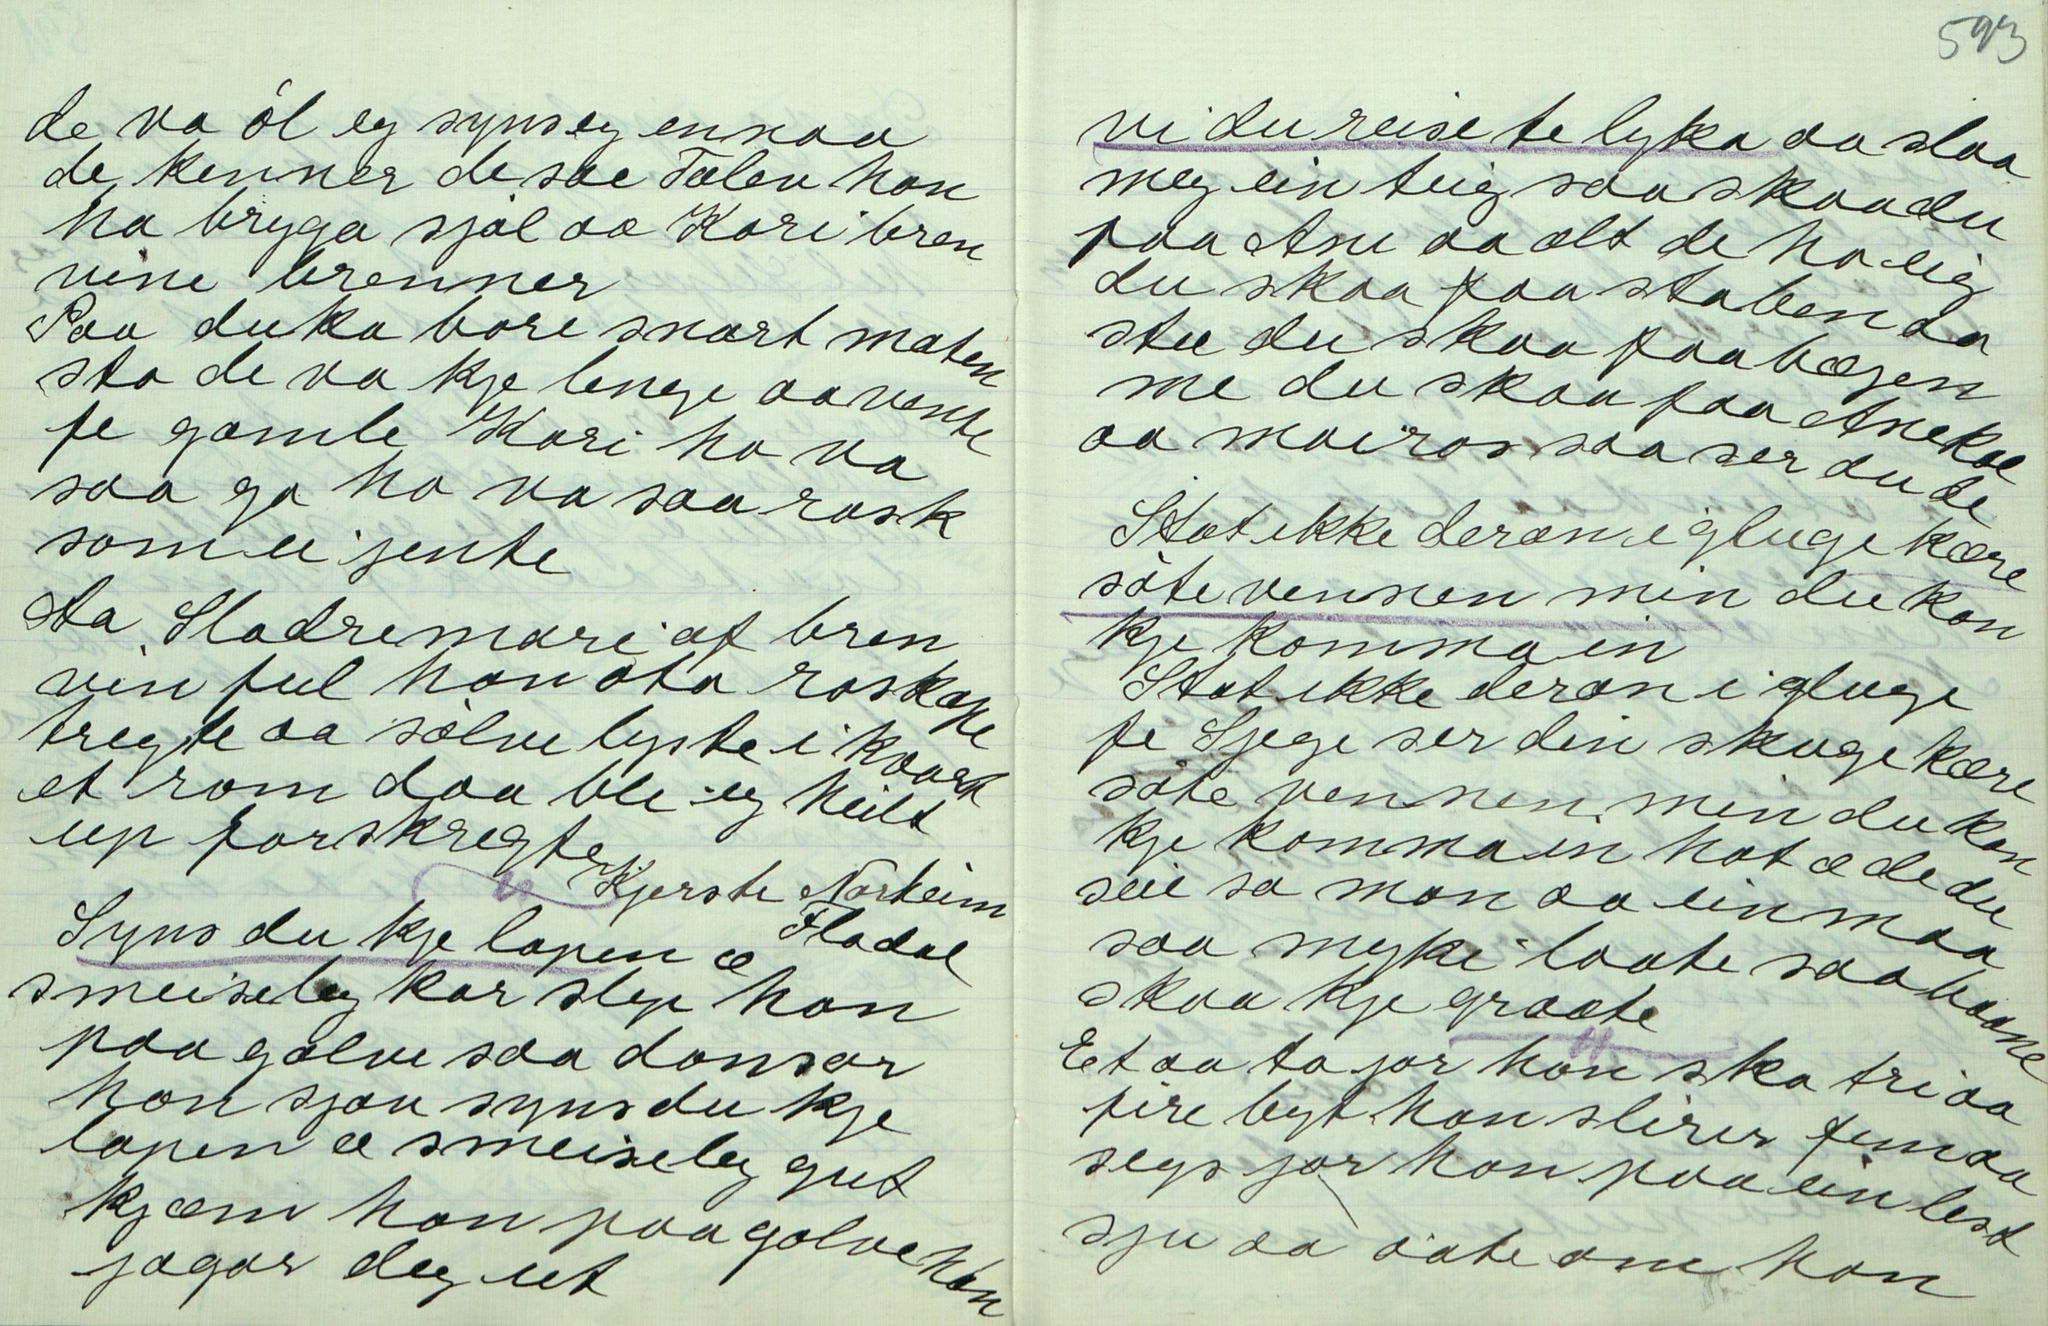 de va öl eg syns eg ennaa
de kenner de sae Talen han
ha bryga sjøl aa Kari bren
vine brenner
Saa du ka bare snart maten
sta de va kje lenge aa vente
fe gamle Kari ho va
saa ga ho va saa rask
som ei jente
Aa Sladremari af bren
vin ful han ota raskape
tregte aa sölve lyste i kvart
et rom daa ble eg heilt
up forskregte
Kjerste Norheim
Fladal
Syns du kje lapen æ
smeiseleg kar slep han
paa golve saa dansar
han sjau syns du kje
lapen æ smeiseleg gut
kjæm han paa golve han
jagar deg ut
593
vi du reise te lyka aa slaa
meg ein teig saa skaa du
faa Ane aa alt de ho eig
du skaa faa staben aa
stue du skaa faa bægen
me du skaa faa Anekal
aa mairos saa ser du de
Stat ikke deran i gluge kære
söte vennen min du kan
kje komma in
Stat ikke deran i gluge
fe Sjege ser din skuge kære
söte vennen min du kan
kje komma in hot æ de du
seie sa man aa ein maa
saa myki laate saa baane
skaa kje graate
Et aa ta jor han ska tri aa
fire byt han slirer fem aa
segs jor han paa ein lest
sju aa aate om han